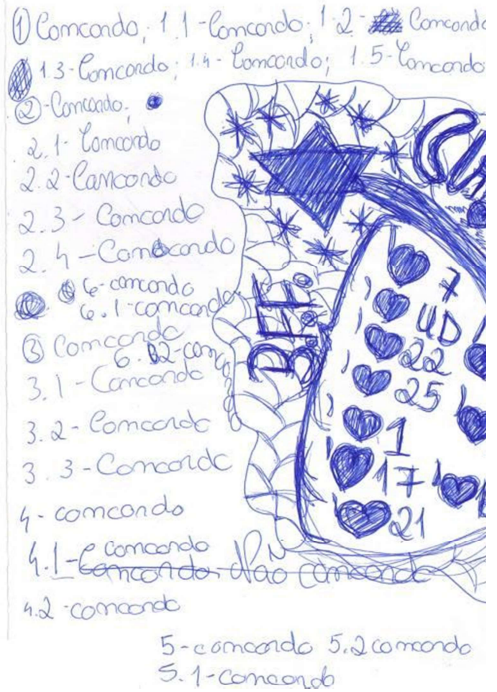 ① Concordo; 1.1-Concordo; 1.2- Concordo
1.3-Concordo; 1.4-Concordo; 1.5-Concordo
②-Concordo.
2.1-Concordo
2.2-Concordo
2.3-Concordo
2.4-Concordo
6-concordo
6.1-concordo
③ Concordo
6.2-conc
3.1-Concordo
3.2-Concordo
3.3-Concordo
4-concordo
4.1-concordo
Concordo Não concordo
4.2-concordo
5-concordo 5.2 concordo
5.1-Concordo
7
UD
22
25
1
17
21